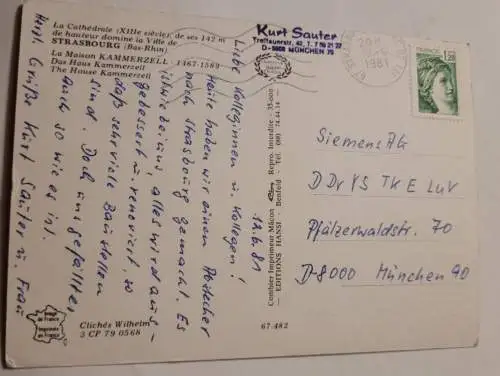 La Cathédrale (XIIIe siècle), de ses 142 m
de hauteur domine la Ville de
STRASBOURG (Bas-Rhin)
La Maison KAMMERZELL 1467-1589
Das Haus Kammerzell
The House Kammerzell
Kurt Sauter
D-8000 MÜNCHEN 70
12.6.81
Liebe Kolleginnen u. Kollegen!
Heute haben wir einen Abstecher
nach Strasbourg gemacht. Es
ist wie bei uns, alles wird aus-
gebessert u. renoviert, so
daß sehr viele Baustellen
sind. Doch uns gefällt es
auch so wie es ist.
Herzl. Grüße Kurt Sauter u. Frau
Combier Imprimeur Mâcon
Repro. Interdite - 35-000
EDITIONS HANSI Benfeld Tel. (88) 74.44.14
1981
FRANCE
1,20
Siemens AG
D Dr VS TK E LuV
Pfälzerwaldstr. 70
D-8000 München 90
Image
de France
Imprimée
en France
Clichés Wilhelm
3 CP 79 0568
67-482